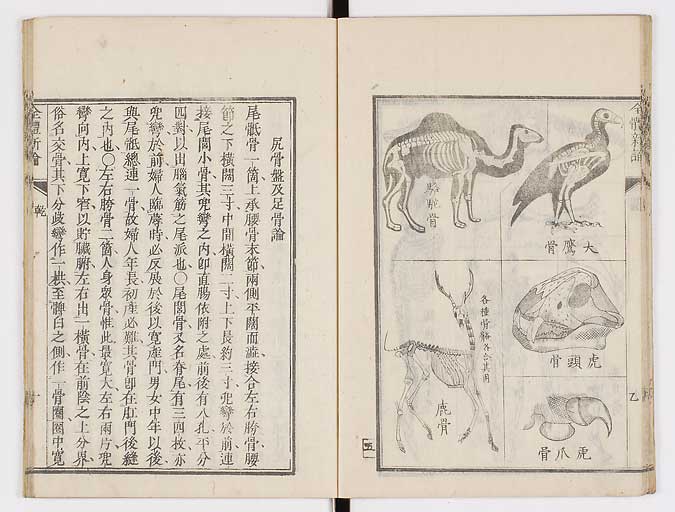 全體新論
大鷹骨
駱駝骨
虎頭骨
各種骨骼各合其用
鹿骨
虎爪骨
乙
五
尻骨盤及足骨論
尾骶骨一箇上承腰骨末節兩側平闊而澁接合左右胯骨腰
節之下橫闊三寸中間橫闊二寸上下長約三寸兜彎於前連
接尾閭小骨其兜彎之內卽直腸依附之處前後有八孔平分
四對以出腦氣筋之尾派也○尾閭骨又名脊尾有三四枚亦
兜彎於前婦人臨蓐時必反展於後以寬產門男女中年以後
與尾骶總連一骨故婦人年長初產必難其骨卽在肛門後縫
之內也○左右胯骨二箇人身眾骨惟此最寬大左右兩片兜
彎向內上寬下窄以貯臟腑左右出一橫骨在前陰之上分界
俗名交骨其下分歧彎作一拱至髀臼之側作一骨圈圈中寬
全體新論
乾
十